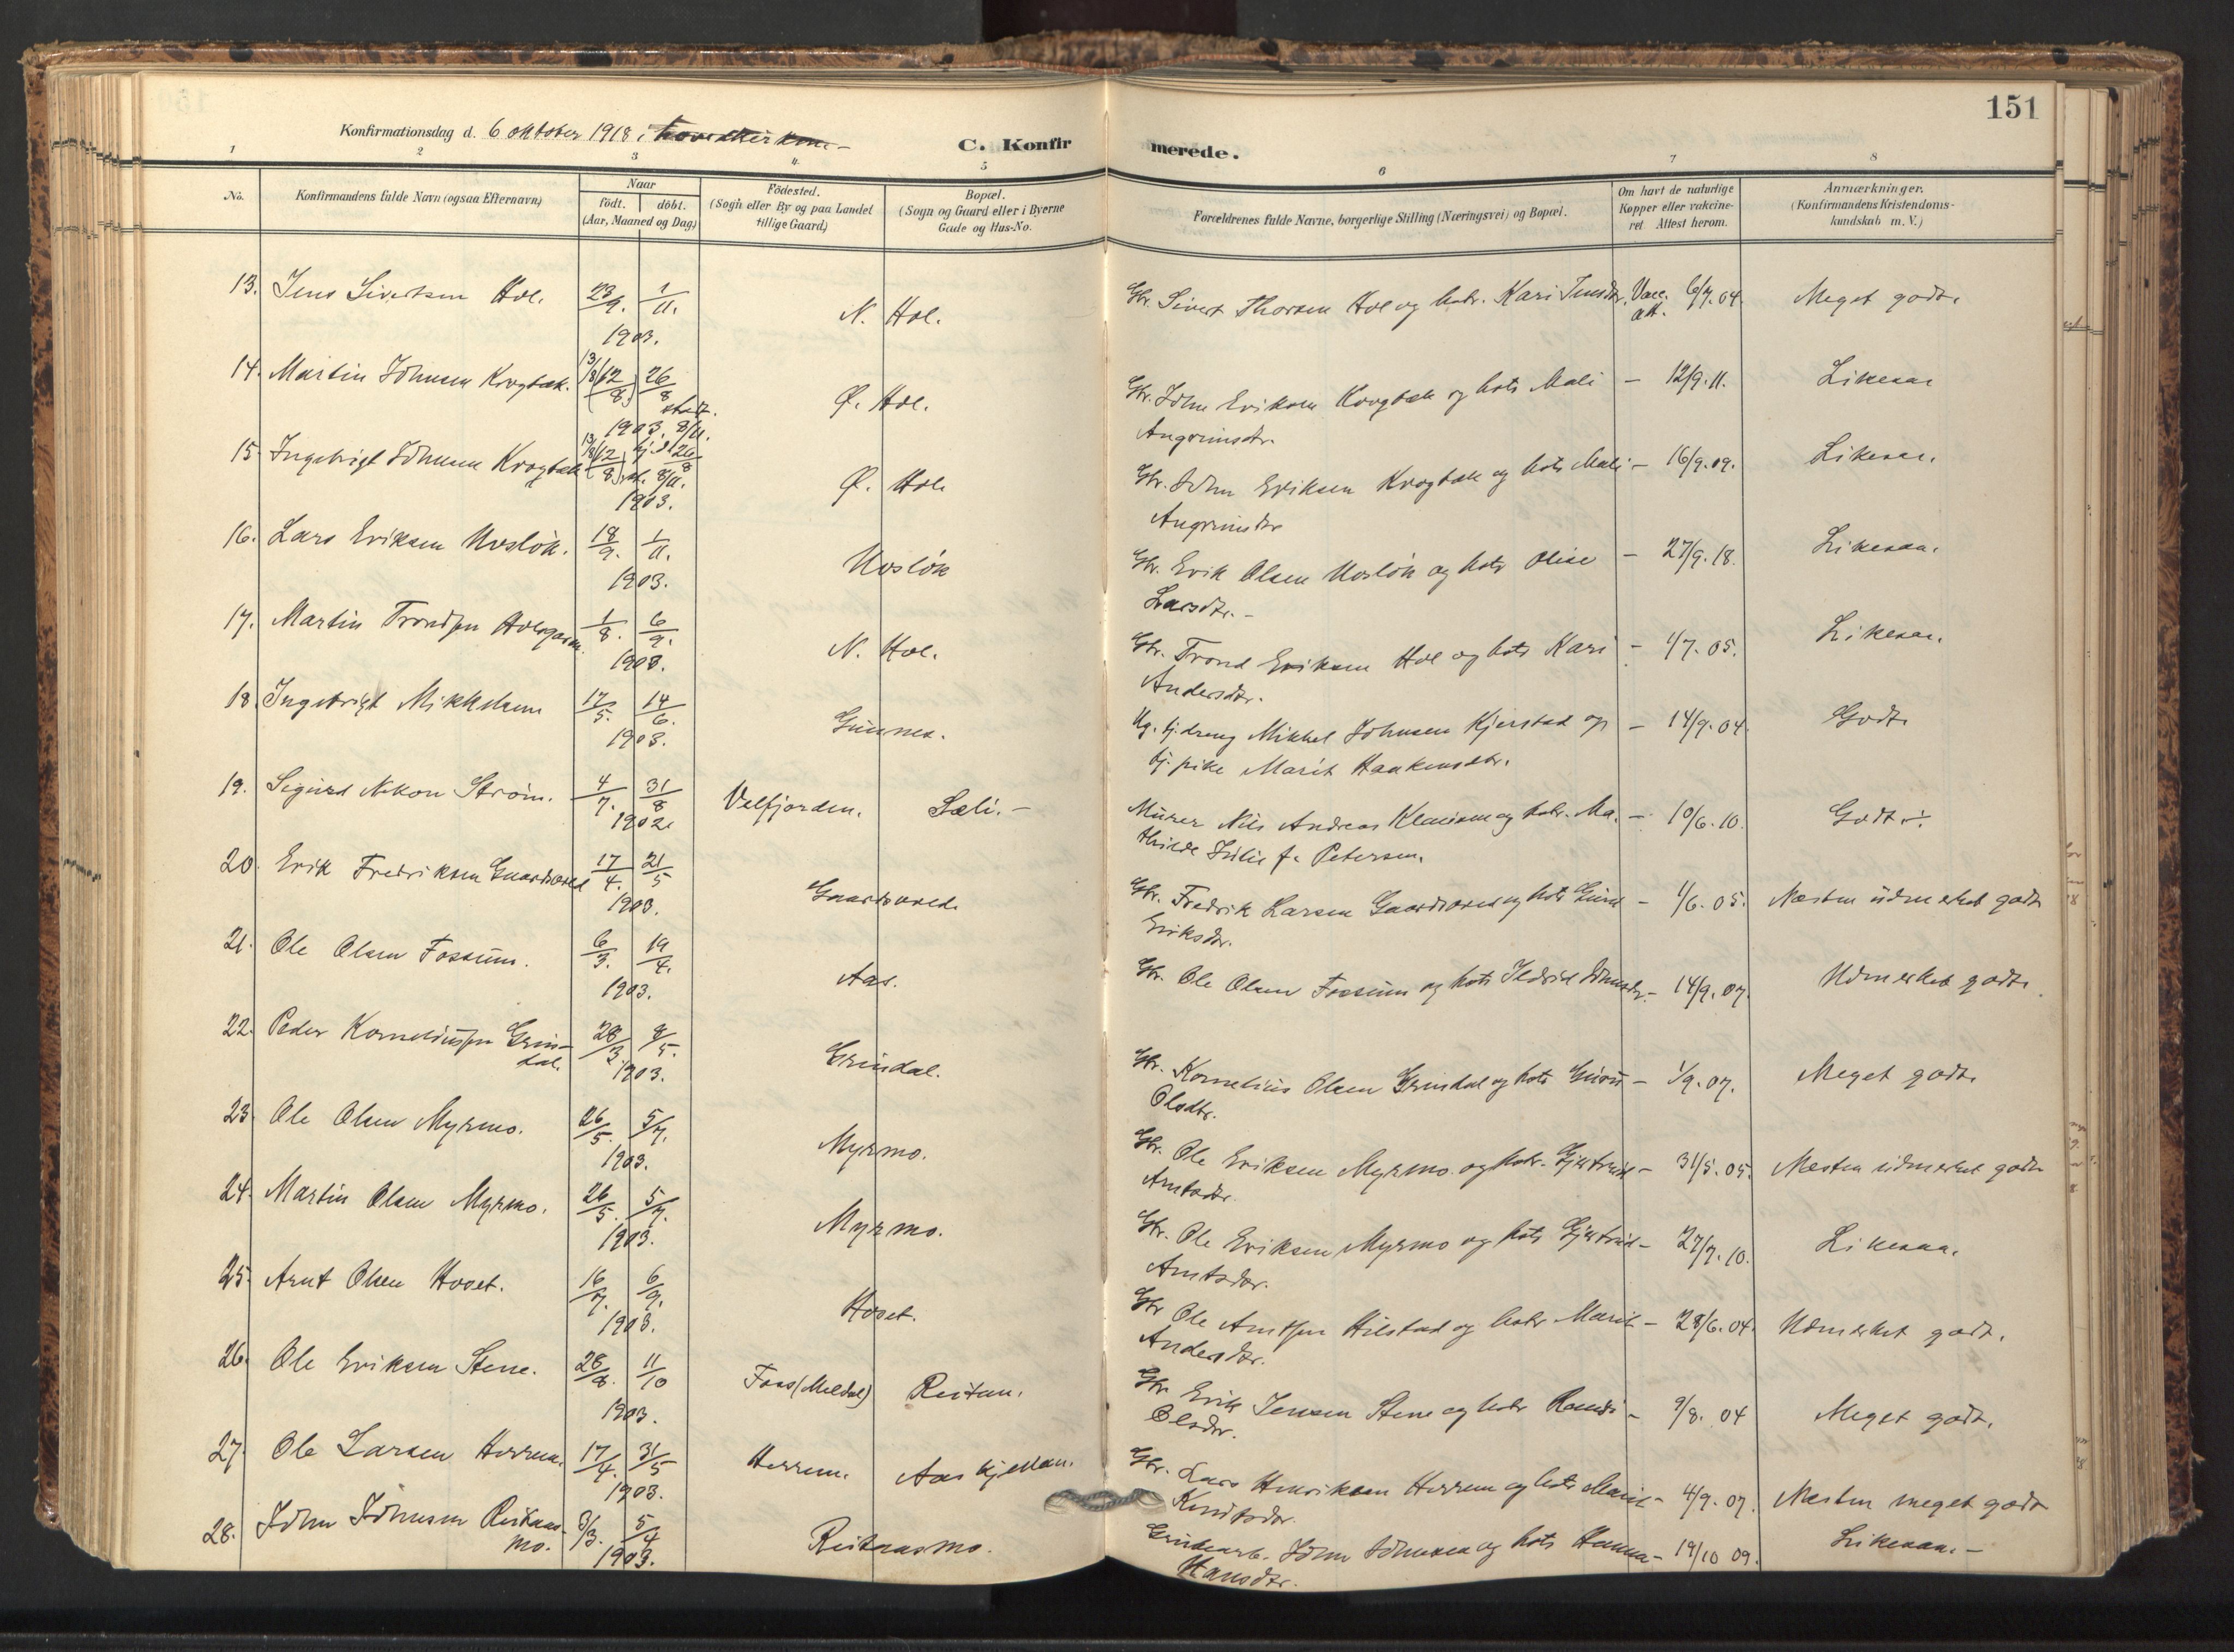 151
Konfirmationsdag d. 6 oktober 1918 i
C. Konfirmerede.
1 2 3 4. 5 6 7 8
No.
Konfirmandens fulde Navn (ogsaa Efternavn)
Naar
födt. döbt.
(Aar, Maaned og Dag)
Födested.
(Sogn eller By og paa Landet
tillige Gaard)
Bopæl.
(Sogn og Gaard eller i Byerne
Gade og Hus-No.
Forældrenes fulde Navne, borgerlige Stilling (Næringsvei) og Bopæl.
Om havt de naturlige
Kopper eller vakcine-
ret Attest herom.
Anmærkninger.
(Konfirmandens Kristendoms-
kundskab m. V.)
13. Jens Sivertsen Hol. 23/9. 1/11. 1903. N. Hol. Gbr. Sivert Thorsen Hol og hstr. Kari Jensdtr. Vacc. att. 6/7.04. Meget godt.
14. Martin Johnsen Krogbæk. 13/8 (12/8) 26/8 stadf. 8/11. 1903. Ø. Hol. Gbr. John Eriksen Krogbæk og hstr Mali
Angrimsdtr. – 12/9.11. Likesaa
15 Ingebrigt Johnsen Krogbæk 13/8 (12/8) hj.d. 26/8 st. 8/11. 1903. Ø. Hol. Gbr. John Eriksen Krogbæk og hstr Mali
Angrimsdtr – 16/9.09. Likesaa.
16. Lars Eriksen Mosløk. 18/9. 1/11. 1903. Mosløk Gbr. Erik Olsen Mosløk og hstr Olise
Larsdtr. – – 27/9.18. Likesaa.
17. Martin Trondsen 1/8. 6/9. 1903. N. Hol. Gbr. Trond Eriksen Hol og hstr Kari
Andersdtr. – 1/7.05. Likesaa.
18. Ingebrigt Mikkelsen 17/5. 14/6. 1903. Gunnes. Ug. tj. dreng Mikkel Johnsen Kjerstad og
tj. pike Marit Haakensdtr. – 14/9.04. Godt
19. Sigurd Nikon Strøm. 4/7. 31/8 1902 Velfjorden. Sæli. – Murer Nils Andreas og hstr. Ma-
thilde Julie f. Petersen. – 10/6.10. Godt ÷
20. Erik Fredriksen Gaardsored 17/4. 21/5 1903. Gaardsored. Gbr. Fredrik Larsen Gaardsored og hstr
Eriksdtr. – 1/6.05. Næsten udmerket godt
21. Ole Olsen Fossum. 6/3. 19/4. 1903. Aas. Gbr. Ole Olsen Fossum og hstr Ildrid Johnsdtr. – 14/9.07. Udmerket godt.
22. Peder Korneliussen Grin-
dal. 28/3. 8/5. 1903. Grindal. Gbr. Kornelius Olsen Grindal og hstr Guru
Olsdtr. – 1/9.07. Meget godt.
23. Ole Olsen Myrmo. 26/5. 5/7. 1903. Myrmo. Gbr. Ole Eriksen Myrmo og hstr. Gjertrud
Arntsdtr. – 31/5.05. Næsten udmerket godt
24. Martin Olsen Myrmo. 26/5. 5/7. 1903. Myrmo. Gbr. Ole Eriksen Myrmo og hstr Gjertrud
Arntsdtr. – 27/7.10. Likesaa.
25. Arnt Olsen Hovet. 16/7. 6/9. 1903. Hovet. Gbr Ole Arntsen Hilstad og hstr Marit
Andersdtr. – 28/6.04. Udmerket godt.
26. Ole Eriksen Stene. 28/8. 11/10 1903. Foss (Meldal) Reitan. Gbr Erik Jensen Stene og hstr Randi
Olsdtr. – 9/8. 04 Meget godt.
27. Ole Larsen Herrem. 17/4. 31/5 1903. Herrem. Aaskjellan. Gbr. Lars Henriksen Herrem og hstr Marit
Knudtsdtr. – 4/9.07. Næsten meget godt
28. John Johnsen Reitaas-
mo. 3/3. 5/4 1903. Reitaasmo. Grubearb. John Johnsen og hstr Hanna
Hansdtr. – 19/10 09. Likesaa. –